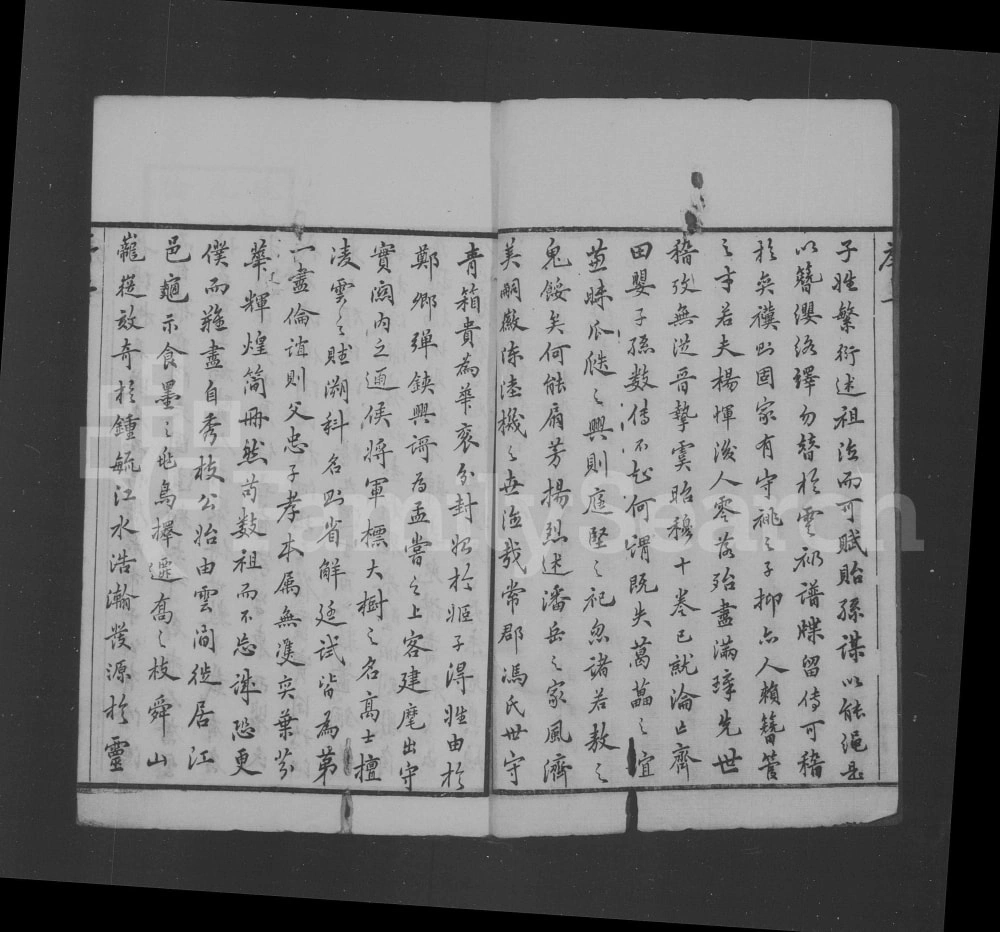 子姓繁衍述祖治而可賦貽孫謀以能繩是
以簪纓絡繹勿替於雲礽譜牒留傳可稽
於奕禩則固家有守祧之子抑亦人賴簪筆
之才若夫楊惲後人零落殆盡滿璋先世
稽攷無從晉摯虞昭穆十卷已就淪亡齊
田嬰子孫數傳不知何謂既失葛藟之宜
益睽瓜瓞之興則庭堅之祀忽諸若敖之
鬼餒矣何能扇芳揚烈述潘岳之家風濟
美嗣徽陳陸機之世德哉常郡馮氏世守
青箱貴為華袞分封始於姬子得姓由於
鄭鄉彈鋏興謌為孟嘗之上客建麾出守
實関內之通侯將軍標大樹之名高士擅
凌雲之賦溯科名則省解廷試皆為第
一盡倫誼則父忠子孝本屬無雙奕葉芬
華輝煌簡冊然苟數祖而不忘誅恐更
僕而難盡自秀枝公始由雲間徙居江
邑龜示食墨之兆鳥擇遷喬之枝舜山
巃嵸效奇於鍾毓江水浩瀚發源於靈
FamilySearch